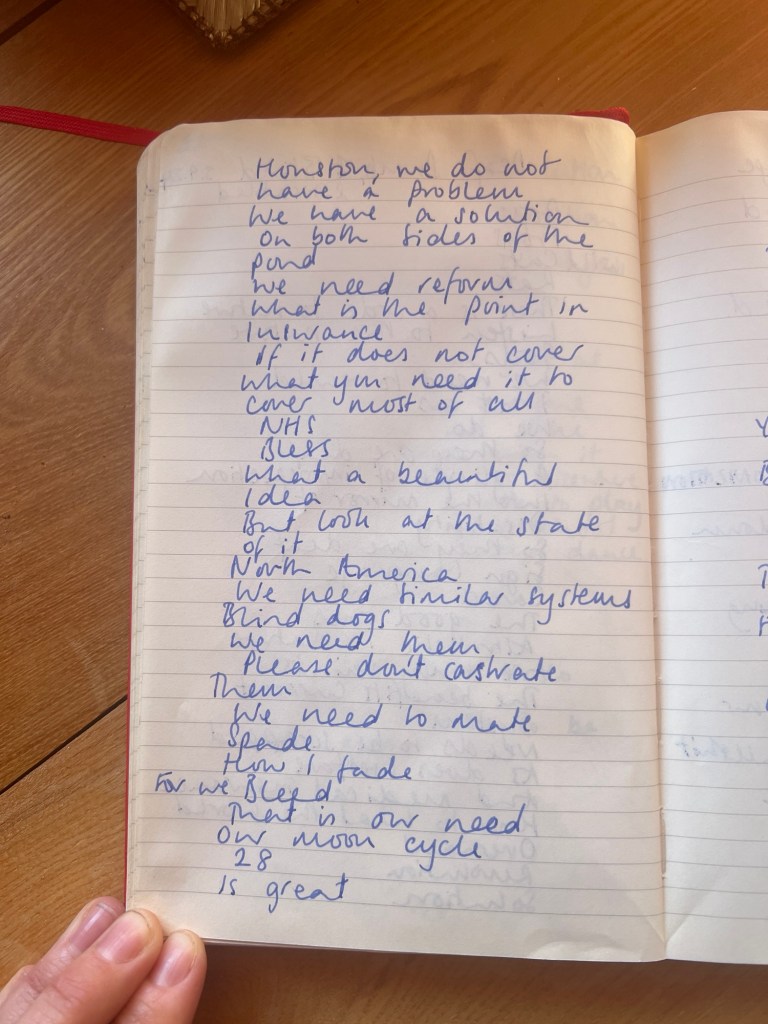 Houston, we do not
have a problem
We have a solution
On both sides of the
pond
We need reform
What is the point in
Insurance
If it does not cover
what you need it to
cover most of all
NHS
Bless
What a beautiful
Idea
But look at the state
of it
North America
We need similar systems
Blind dogs
We need them
Please don't castrate
Them
We need to mate
Spade
How I fade
For we Bleed
That is our need
Our moon cycle
28
Is great